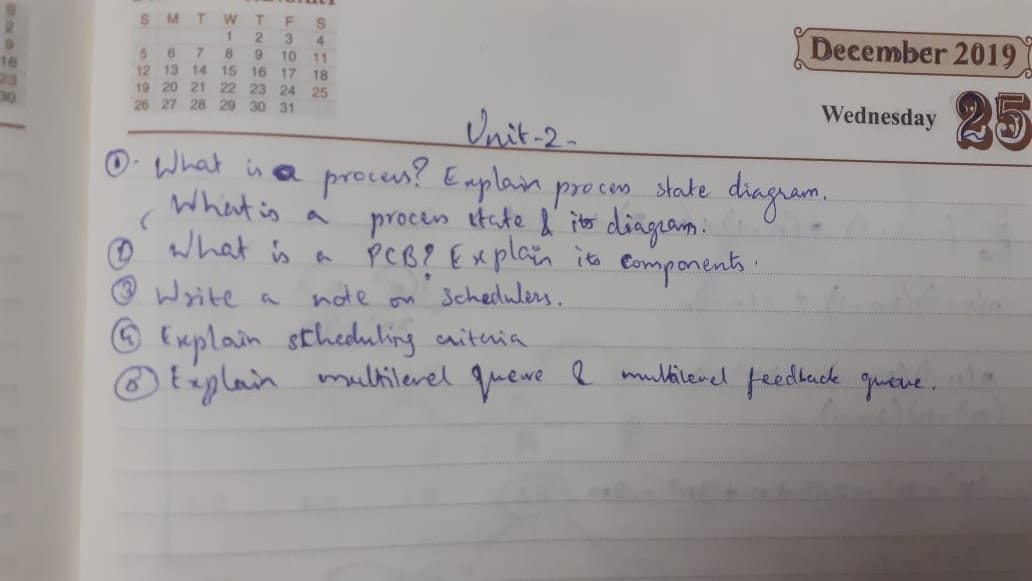 S M T W T F S
1 2 3 4
5 6 7 8 9 10 11
12 13 14 15 16 17 18
19 20 21 22 23 24 25
26 27 28 29 30 31
2
9
16
23
30
December 2019
Wednesday 25
Unit-2-
① What is a process? Explain process state diagram.
( What is a process state & its diagram.
② What is a PCB? Explain its components.
③ Write a note on schedulers.
④ Explain scheduling criteria
⑤ Explain multilevel queue & multilevel feedback queue.